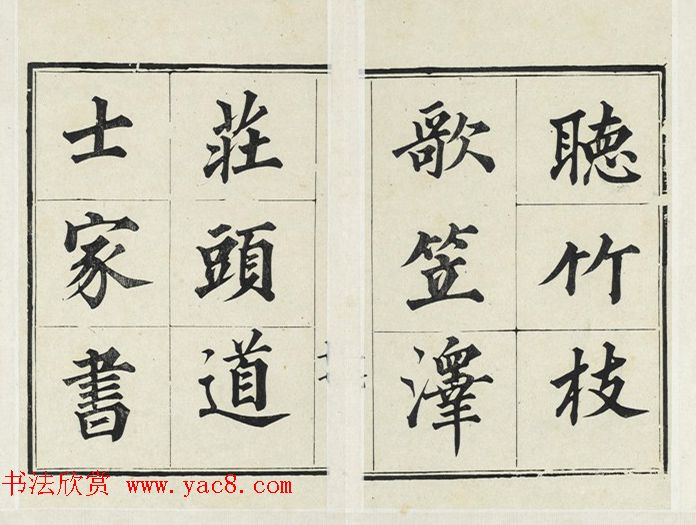 聴竹枝
歌笠澤
莊頭道
士家書
书法欣赏 www.yac8.com